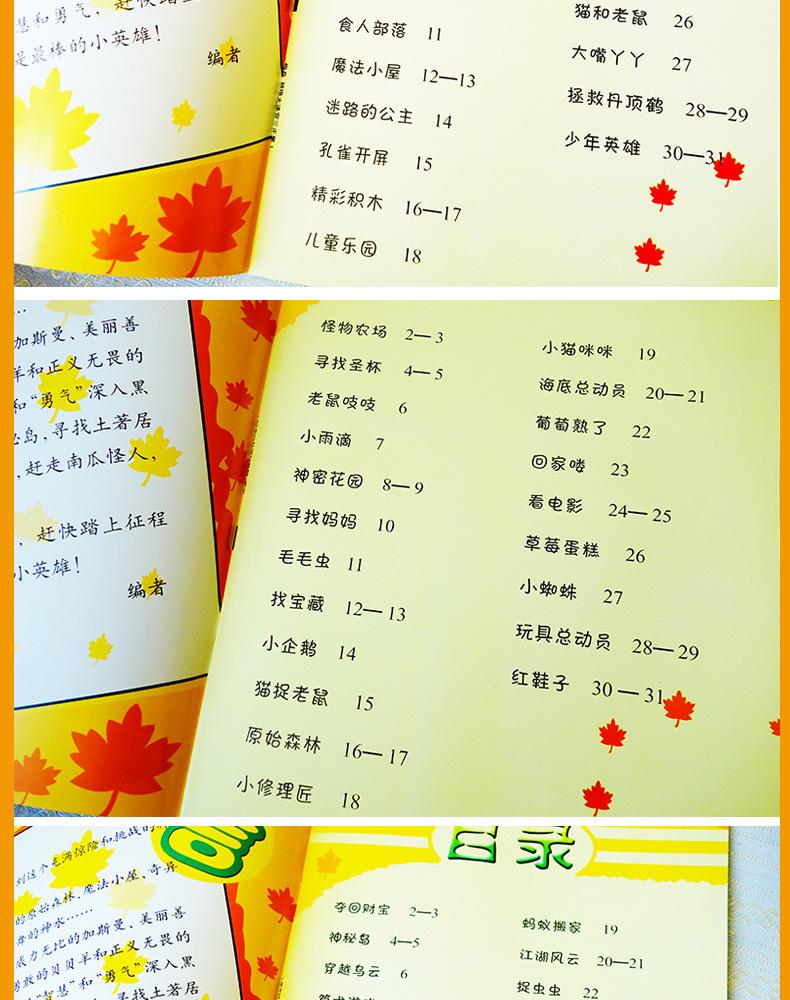 慧和勇气，赶快踏上
是最棒的小英雄！
编者
食人部落 11
魔法小屋 12—13
迷路的公主 14
孔雀开屏 15
精彩积木 16—17
儿童乐园 18
猫和老鼠 26
大嘴丫丫 27
拯救丹顶鹤 28—29
少年英雄 30—31
……
加斯曼、美丽善
羊和正义无畏的
和“勇气”深入黑
岛，寻找土著居
，赶走南瓜怪人，
，赶快踏上征程
小英雄！
编者
怪物农场 2—3
寻找圣杯 4—5
老鼠吱吱 6
小雨滴 7
神密花园 8—9
寻找妈妈 10
毛毛虫 11
找宝藏 12—13
小企鹅 14
猫捉老鼠 15
原始森林 16—17
小修理匠 18
小猫咪咪 19
海底总动员 20—21
葡萄熟了 22
回家喽 23
看电影 24—25
草莓蛋糕 26
小蜘蛛 27
玩具总动员 28—29
红鞋子 30—31
到这个充满惊险和挑战的
的原始森林、魔法小屋、奇异
的神水……
法力无比的加斯曼、美丽善
勇敢的贝贝羊和正义无畏的
“智慧”和“勇气”深入黑
寻找土著居
目录
夺回财宝 2—3
神秘岛 4—5
穿越乌云 6
蚂蚁搬家 19
江湖风云 20—21
捉虫虫 22